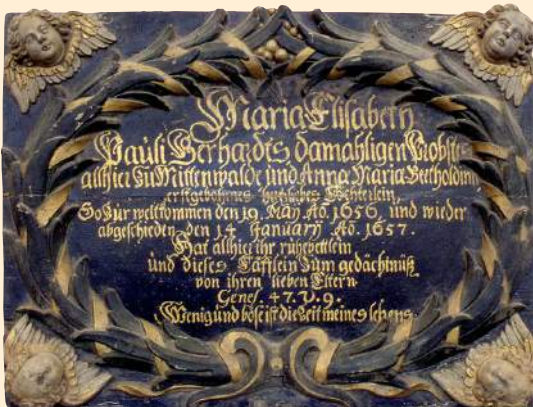 Maria Elisabeth
Pauli Gerhardts damahligen Probstes
allhier zu Mittenwalde und Anna Maria Bertholdin,
erstgebohrnes hertzliebes Töchterlein,
So zur welt kommen den 19. May Ao. 1656 und wieder
abgeschieden den 14 January Ao. 1657.
Hat allhier ihr ruhebettlein
und dieses Täfflein zum gedächtnüß
von ihren lieben Eltern.
Genes. 47. V. 9.
Wenig und böse ist die Zeit meines lebens